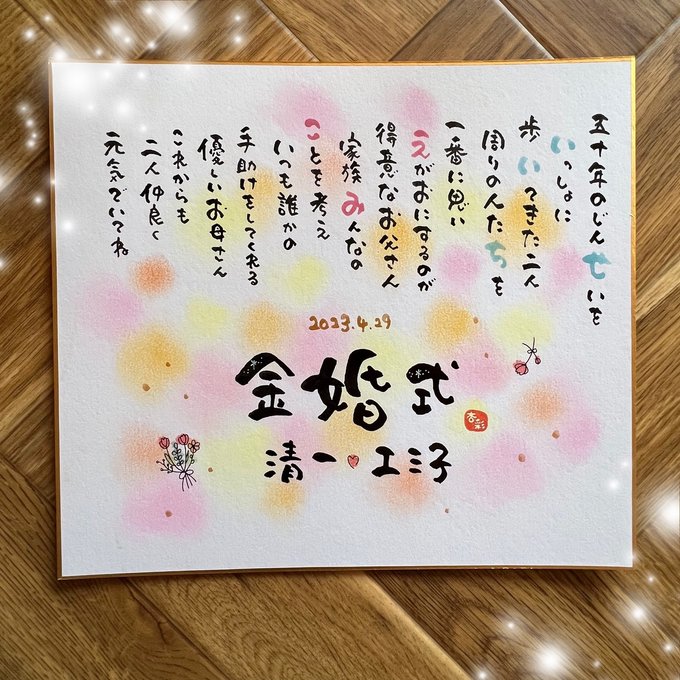 五十年のじんせいを
いっしょに
歩いてきた二人
周りの人たちを
一番に思い
えがおにするのが
得意なお父さん
家族みんなの
ことを考え
いつも誰かの
手助けをしてくれる
優しいお母さん
これからも
二人仲良く
元気でいてね
2023.4.29
金婚式
杏彩
清一♥エミ子